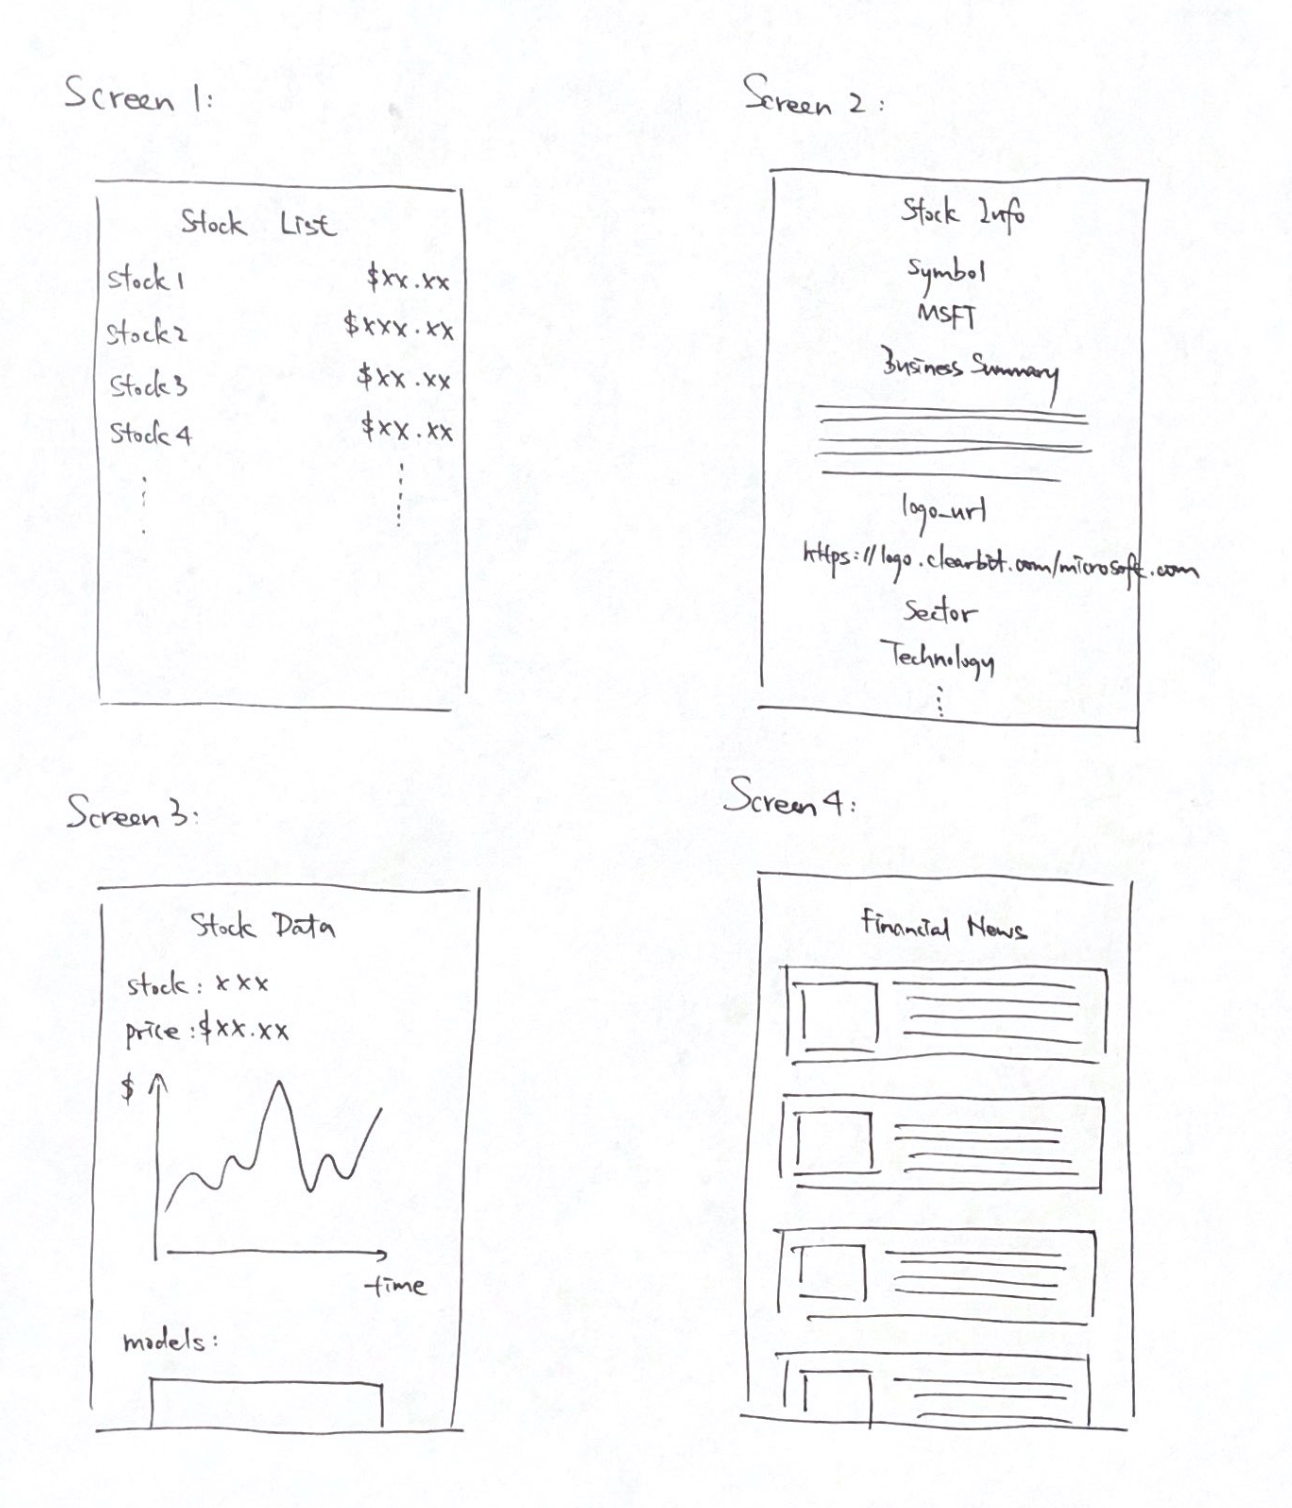 Screen 1:
Stock List
Stock 1 $xx.xx
Stock 2 $xxx.xx
Stock 3 $xx.xx
Stock 4 $xx.xx
Screen 2:
Stock Info
Symbol
MSFT
Business Summary
logo_url
https://logo.clearbit.com/microsoft.com
Sector
Technology
Screen 3:
Stock Data
stock: xxx
price: $xx.xx
$
time
models:
Screen 4:
Financial News